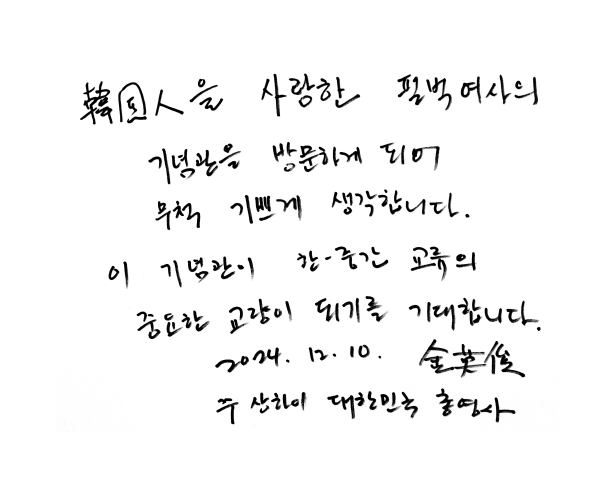 韓国人을 사랑한 펄벅여사의
기념관을 방문하게 되어
무척 기쁘게 생각합니다.
이 기념관이 한-중간 교류의
중요한 교량이 되기를 기대합니다.
2024. 12. 10. 金英俊
주 상하이 대한민국 총영사